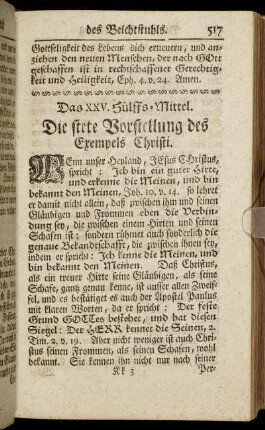 des Beichtstuhls. 517
Gottseligkeit des Lebens dich erneuern, und an-
ziehen den neuen Menschen, der nach GOtt
geschaffen ist in rechtschaffener Gerechtig-
keit und Heiligkeit, Eph. 4. v. 24. Amen.
Das XXV. Hülffs-Mittel.
Die stete Vorstellung des
Exempels Christi.
WEnn unser Heyland, JEsus Christus,
spricht: Ich bin ein guter Hirte,
und erkenne die Meinen, und bin
bekannt den Meinen, Joh. 10. v. 14. so lehret
er damit nicht allein, daß zwischen ihm und seinen
Gläubigen und Frommen eben die Verbin-
dung sey, die zwischen einem Hirten und seinen
Schafen ist; sondern rühmet auch sonderlich die
genaue Bekandtschafft, die zwischen ihnen sey,
indem er spricht: Ich kenne die Meinen, und
bin bekannt den Meinen. Daß Christus,
als ein treuer Hirte seine Gläubigen, als seine
Schafe, gantz genau kenne, ist ausser allen Zweif-
fel, und es bestätiget es auch der Apostel Paulus
mit klaren Worten, da er spricht: Der feste
Grund GOTTes bestehet, und hat diesen
Siegel: Der HERR kennet die Seinen, 2.
Tim. 2. v. 19. Aber nicht weniger ist auch Chri-
stus seinen Frommen, als seinen Schafen, wohl
bekannt. Sie kennen ihn nicht nur nach seiner
Kk 3 Per-